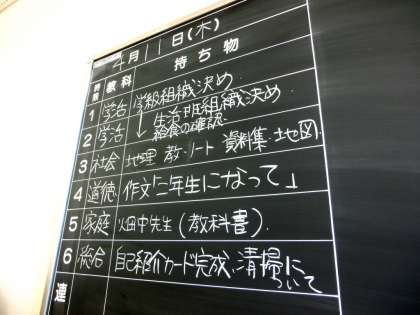 4月11日(木)
時間 教科 持ち物
1 学活 学級組織決め
↓ 生活班組織決め
2 学活 給食の確認
3 社会 地理 教・ノート 資料集・地図
4 道徳 作文「二年生になって」
5 家庭 畑中先生(教科書).
6 総合 自己紹介カード完成、清掃について
連